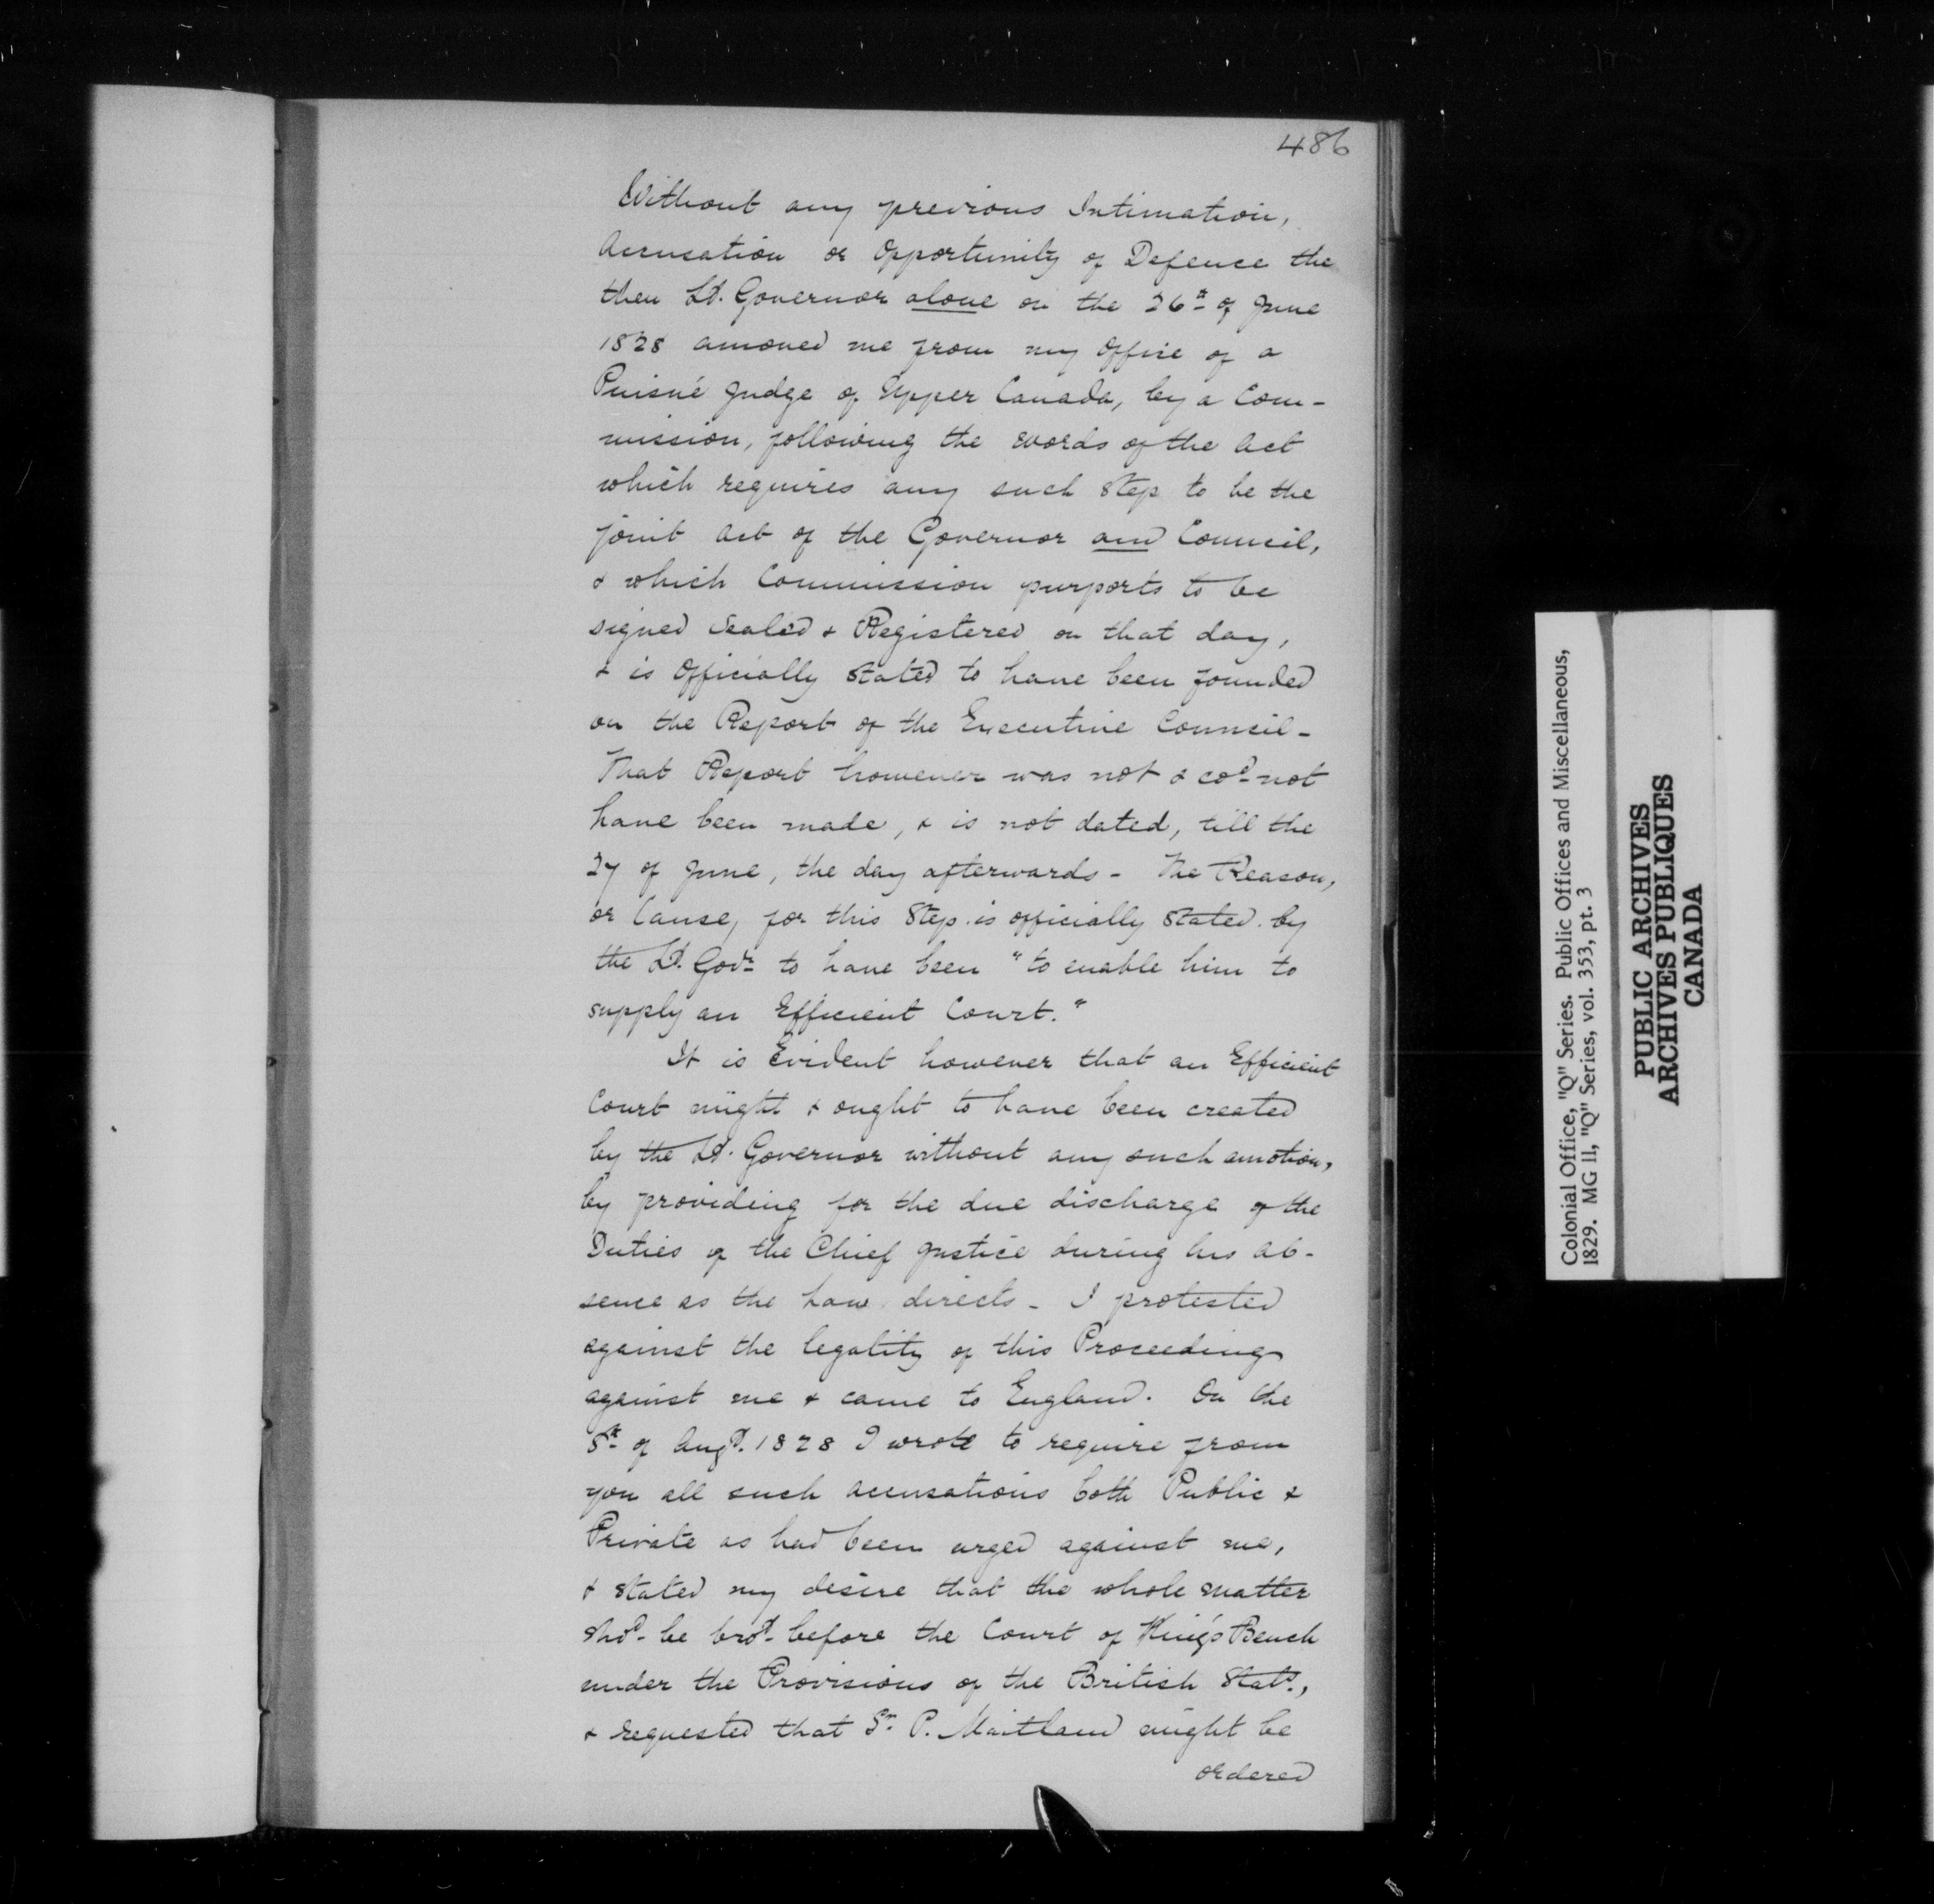 486
Without any previous Intimation,
Accusation or Opportunity of Defence the
then Lt. Governor alone on the 26th of June
1828 amoved me from my Office of a
Puisné Judge of Upper Canada, by a Com-
mission, following the words of the Act
which requires any such Step to be the
joint Act of the Governor and Council,
& which Commission purports to be
signed Sealed & Registered on that day,
& is Officially Stated to have been founded
on the Report of the Executive Council -
That Report however was not & cod not
have been made, & is not dated, till the
27 of June, the day afterwards - The Reason,
or Cause, for this Step is officially Stated by
the Lt. Govr to have been "to enable him to
supply an Efficient Court."
It is Evident however that an Efficient
Court might & ought to have been created
by the Lt. Governor without any such amotion,
by providing for the due discharge of the
Duties of the Chief Justice during his ab-
sence as the Law directs - I protested
against the legality of this Proceeding
against me & came to England. On the
8th of Augt. 1828 I wrote to require from
you all such accusations both Public &
Private as had been urged against me,
& Stated my desire that the whole matter
Shod be brot before the Court of King's Bench
under the Provisions of the British State,
& requested that Sr P. Maitland might be
ordered
Colonial Office, "Q" Series. Public Offices and Miscellaneous,
1829. MG 11, "Q" Series, vol. 353, pt. 3
PUBLIC ARCHIVES
ARCHIVES PUBLIQUES
CANADA